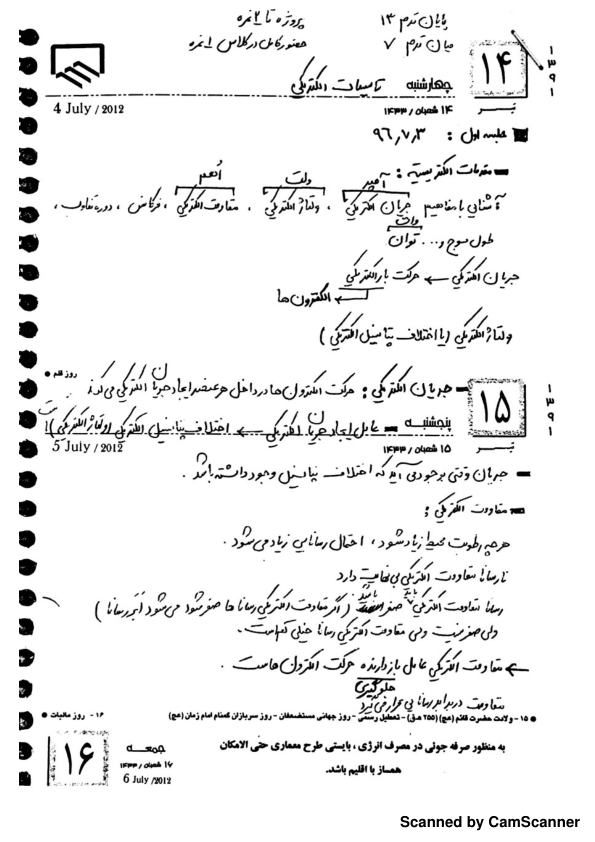 پایان ترم ۱۳ پروژه تا ۲ نمره
میان ترم ۷ حضور کامل در کلاس ۱ نمره
۱۳۹۱
۱۴
تیر
چهارشنبه تاسیسات الکتریکی
۱۴ شعبان / ۱۴۳۳
4 July / 2012
جلسه اول : ۹۶,۷,۳
مقدمات الکتریسیته :
آمپر ولت اُهم
آشنایی با مفاهیم جریان الکتریکی ، ولتاژ الکتریکی ، مقاومت الکتریکی ، فرکانس ، دوره تناوب ،
وات
طول موج و... توان
جریان الکتریکی ← حرکت بار الکتریکی
← الکترون ها
ولتاژ الکتریکی (یا اختلاف پتانسیل الکتریکی )
روز قلم
جریان الکتریکی : حرکت الکترون ها در داخل هر عنصر ایجاد جریان الکتریکی می کند
۱۳۹۱
۱۵
تیر
پنجشنبه عامل ایجاد جریان الکتریکی ← اختلاف پتانسیل الکتریکی (ولتاژ الکتریکی) است
۱۵ شعبان / ۱۴۳۳
5 July / 2012
جریان وقتی بوجود می آید که اختلاف پتانسیل وجود داشته باشد .
مقاومت الکتریکی :
هرچه رطوبت محیط زیاد شود ، احتمال رسانایی زیاد می شود .
نارسانا مقاومت الکتریکی بی نهایت دارد
رسانا مقاومت الکتریکی باید صفر باشد ( اگر مقاومت الکتریکی رسانا ها صفر شود می شود اَبَر رسانا )
ولی صفر نیست ولی مقاومت الکتریکی رسانا خیلی کم است .
← مقاومت الکتریکی عامل بازدارنده حرکت الکترون هاست .
جلوگیری
مقاومت در برابر رسانایی قرار می گیرد
۱۵ - ولادت حضرت قائم (عج) (۲۵۵ ه.ق) - تعطیل رسمی - روز جهانی مستضعفان - روز سربازان گمنام امام زمان (عج) ۱۶ - روز مالیات
به منظور صرفه جوئی در مصرف انرژی ، بایستی طرح معماری حتی الامکان
همساز با اقلیم باشد.
جمعه
۱۶ شعبان / ۱۴۳۳
6 July / 2012
۱۶
Scanned by CamScanner